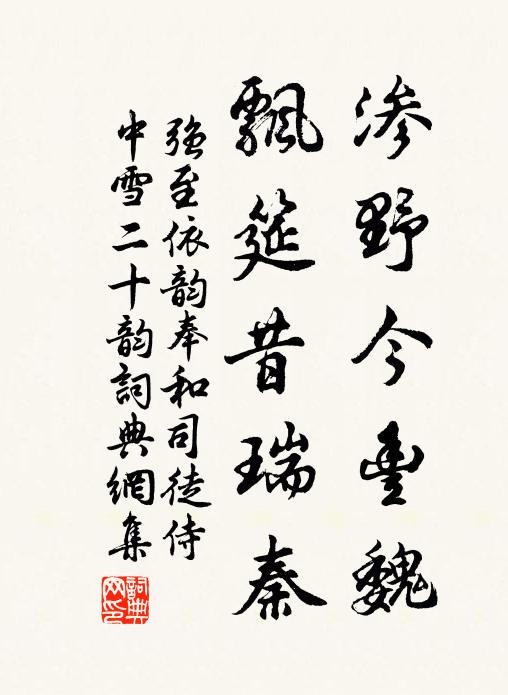 渗野今豊魏
飄筵昔瑞秦
強至依韵奉和司徒侍
中雪二十韵詞典網集
詞典网印